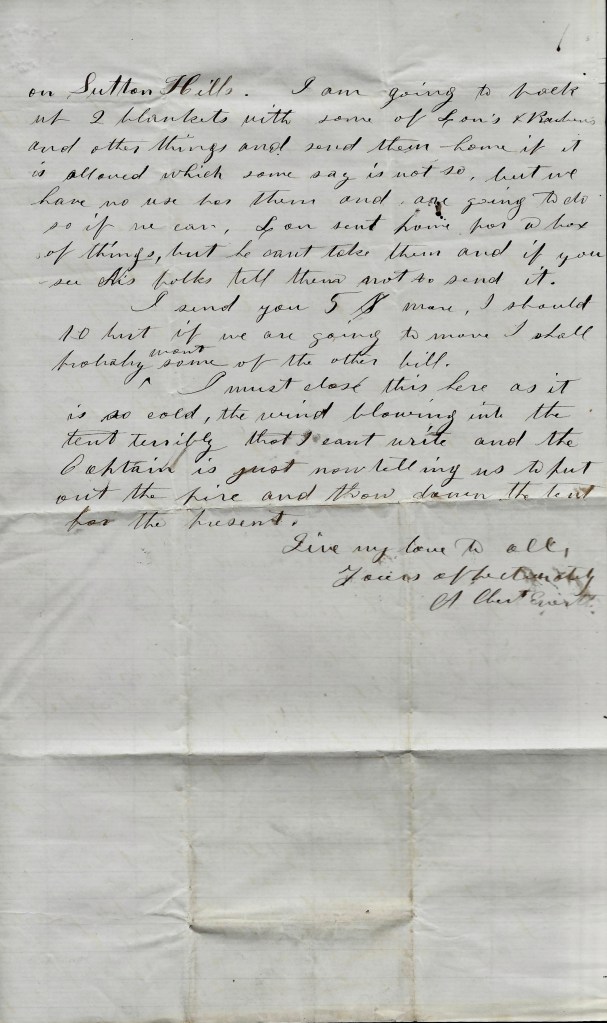 on Sutton Hills. I am going to pack
up 2 blankets with some of Lon's &
and other things and send them home if it
is allowed which some say is not so, but we
have no use for them and are going to do
so if we can, Lon sent home for a box
of things, but he cant take them and if you
see his folks tell them not to send it.
I send you 5 $ more, I should
10 but if we are going to move I shall
probably want some of the other bill.
I must close this here as it
is so cold, the wind blowing into the
tent terribly that I cant write and the
Captain is just now telling us to put
out the fire and throw down the tent
for the present.
Give my love to all,
Yours affectionately
Albert